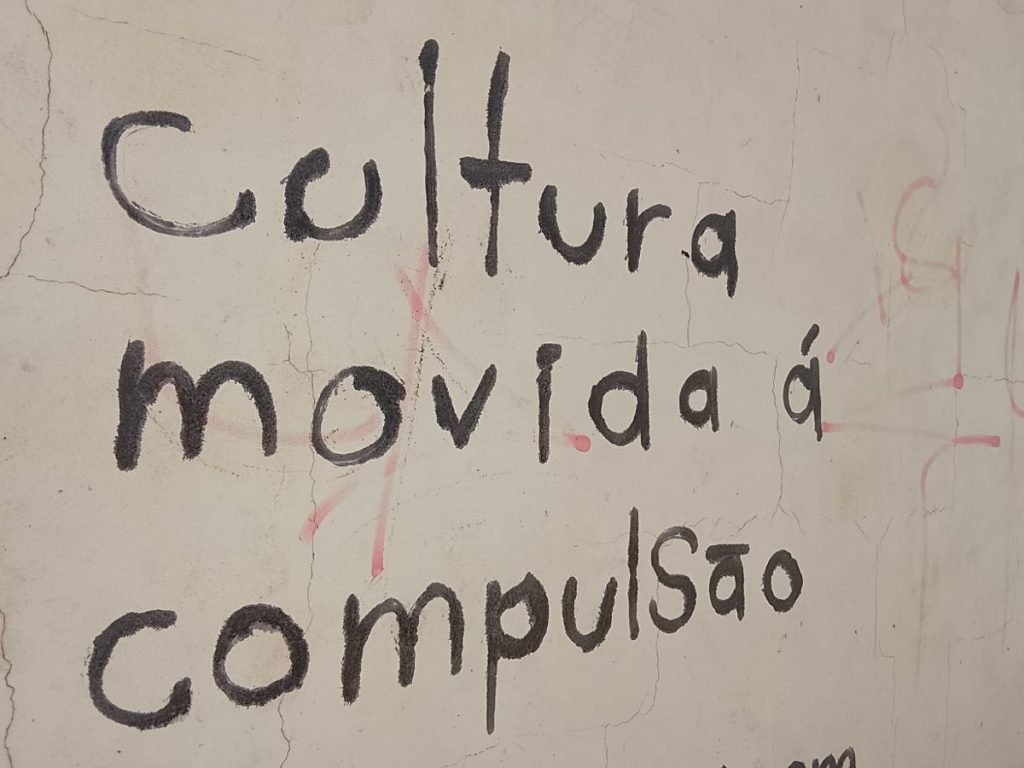 Cultura
movida á
compulsão